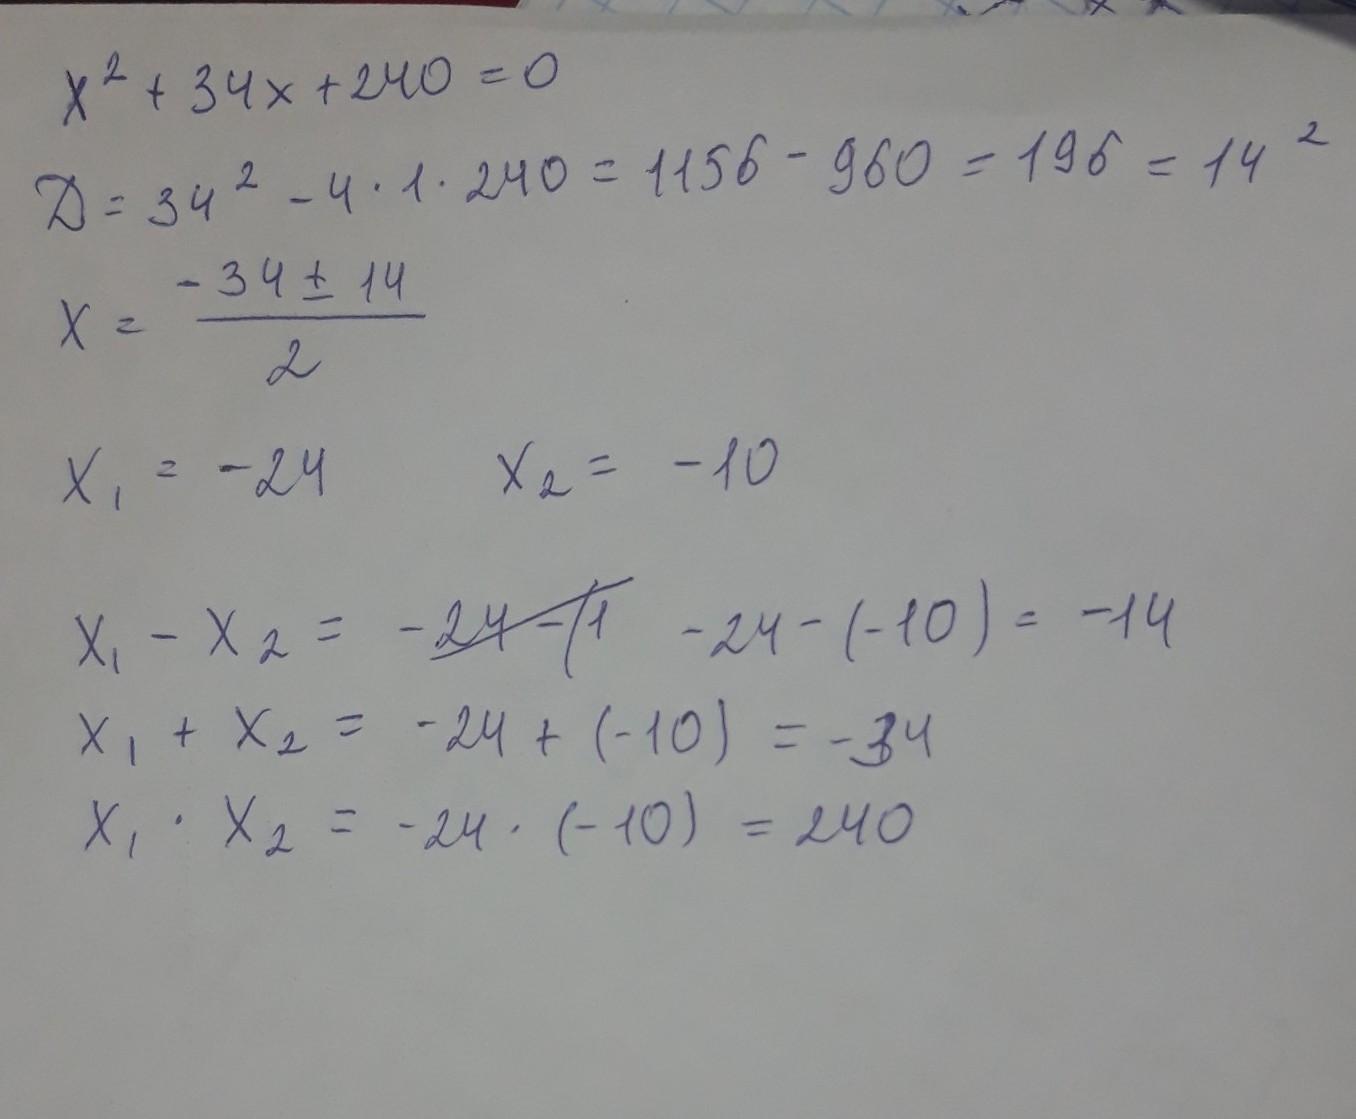 x² + 34x + 240 = 0
D = 34² - 4 · 1 · 240 = 1156 - 960 = 196 = 14²
x = (-34 ± 14) / 2
x₁ = -24 x₂ = -10
x₁ - x₂ = -24 - (-10) = -14
x₁ + x₂ = -24 + (-10) = -34
x₁ · x₂ = -24 · (-10) = 240